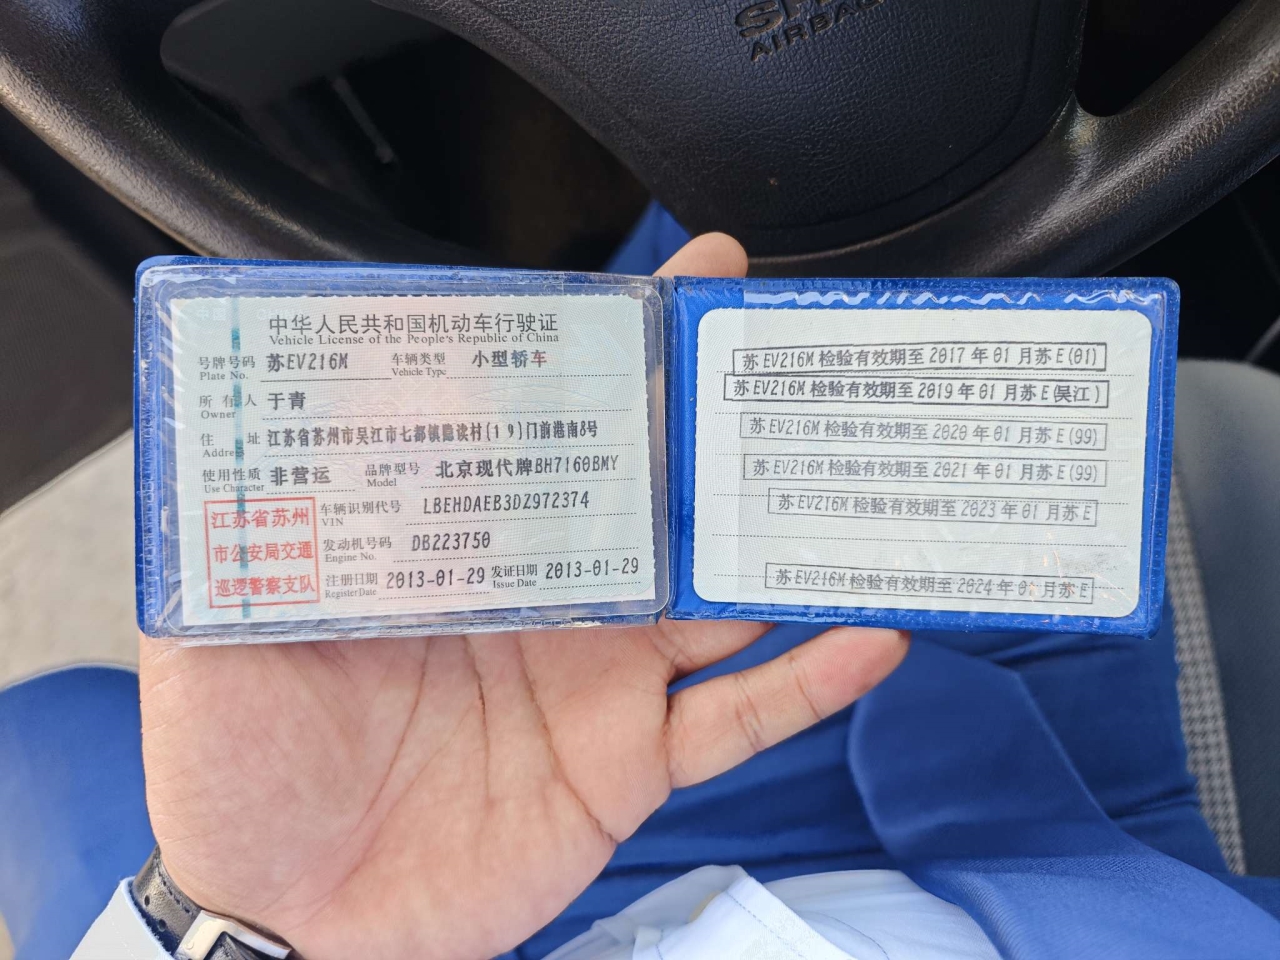 AIRBAG
中华人民共和国机动车行驶证
Vehicle License of the People's Republic of China
号牌号码 苏EV216M 车辆类型 小型轿车
Plate No. Vehicle Type
所有人 于青
Owner
住址 江苏省苏州市吴江市七都镇隐读村(19)门前港南8号
Address
使用性质 非营运 品牌型号 北京现代牌BH7160BMY
Use Character Model
江苏省苏州
市公安局交通
巡逻警察支队
车辆识别代号 LBEHDAEB3DZ972374
VIN
发动机号码 DB223750
Engine No.
注册日期 2013-01-29 发证日期 2013-01-29
Register Date Issue Date
苏EV216M检验有效期至2017年01月苏E(01)
苏EV216M检验有效期至2019年01月苏E(吴江)
苏EV216M检验有效期至2020年01月苏E(99)
苏EV216M检验有效期至2021年01月苏E(99)
苏EV216M检验有效期至2023年01月苏E
苏EV216M检验有效期至2024年01月苏E